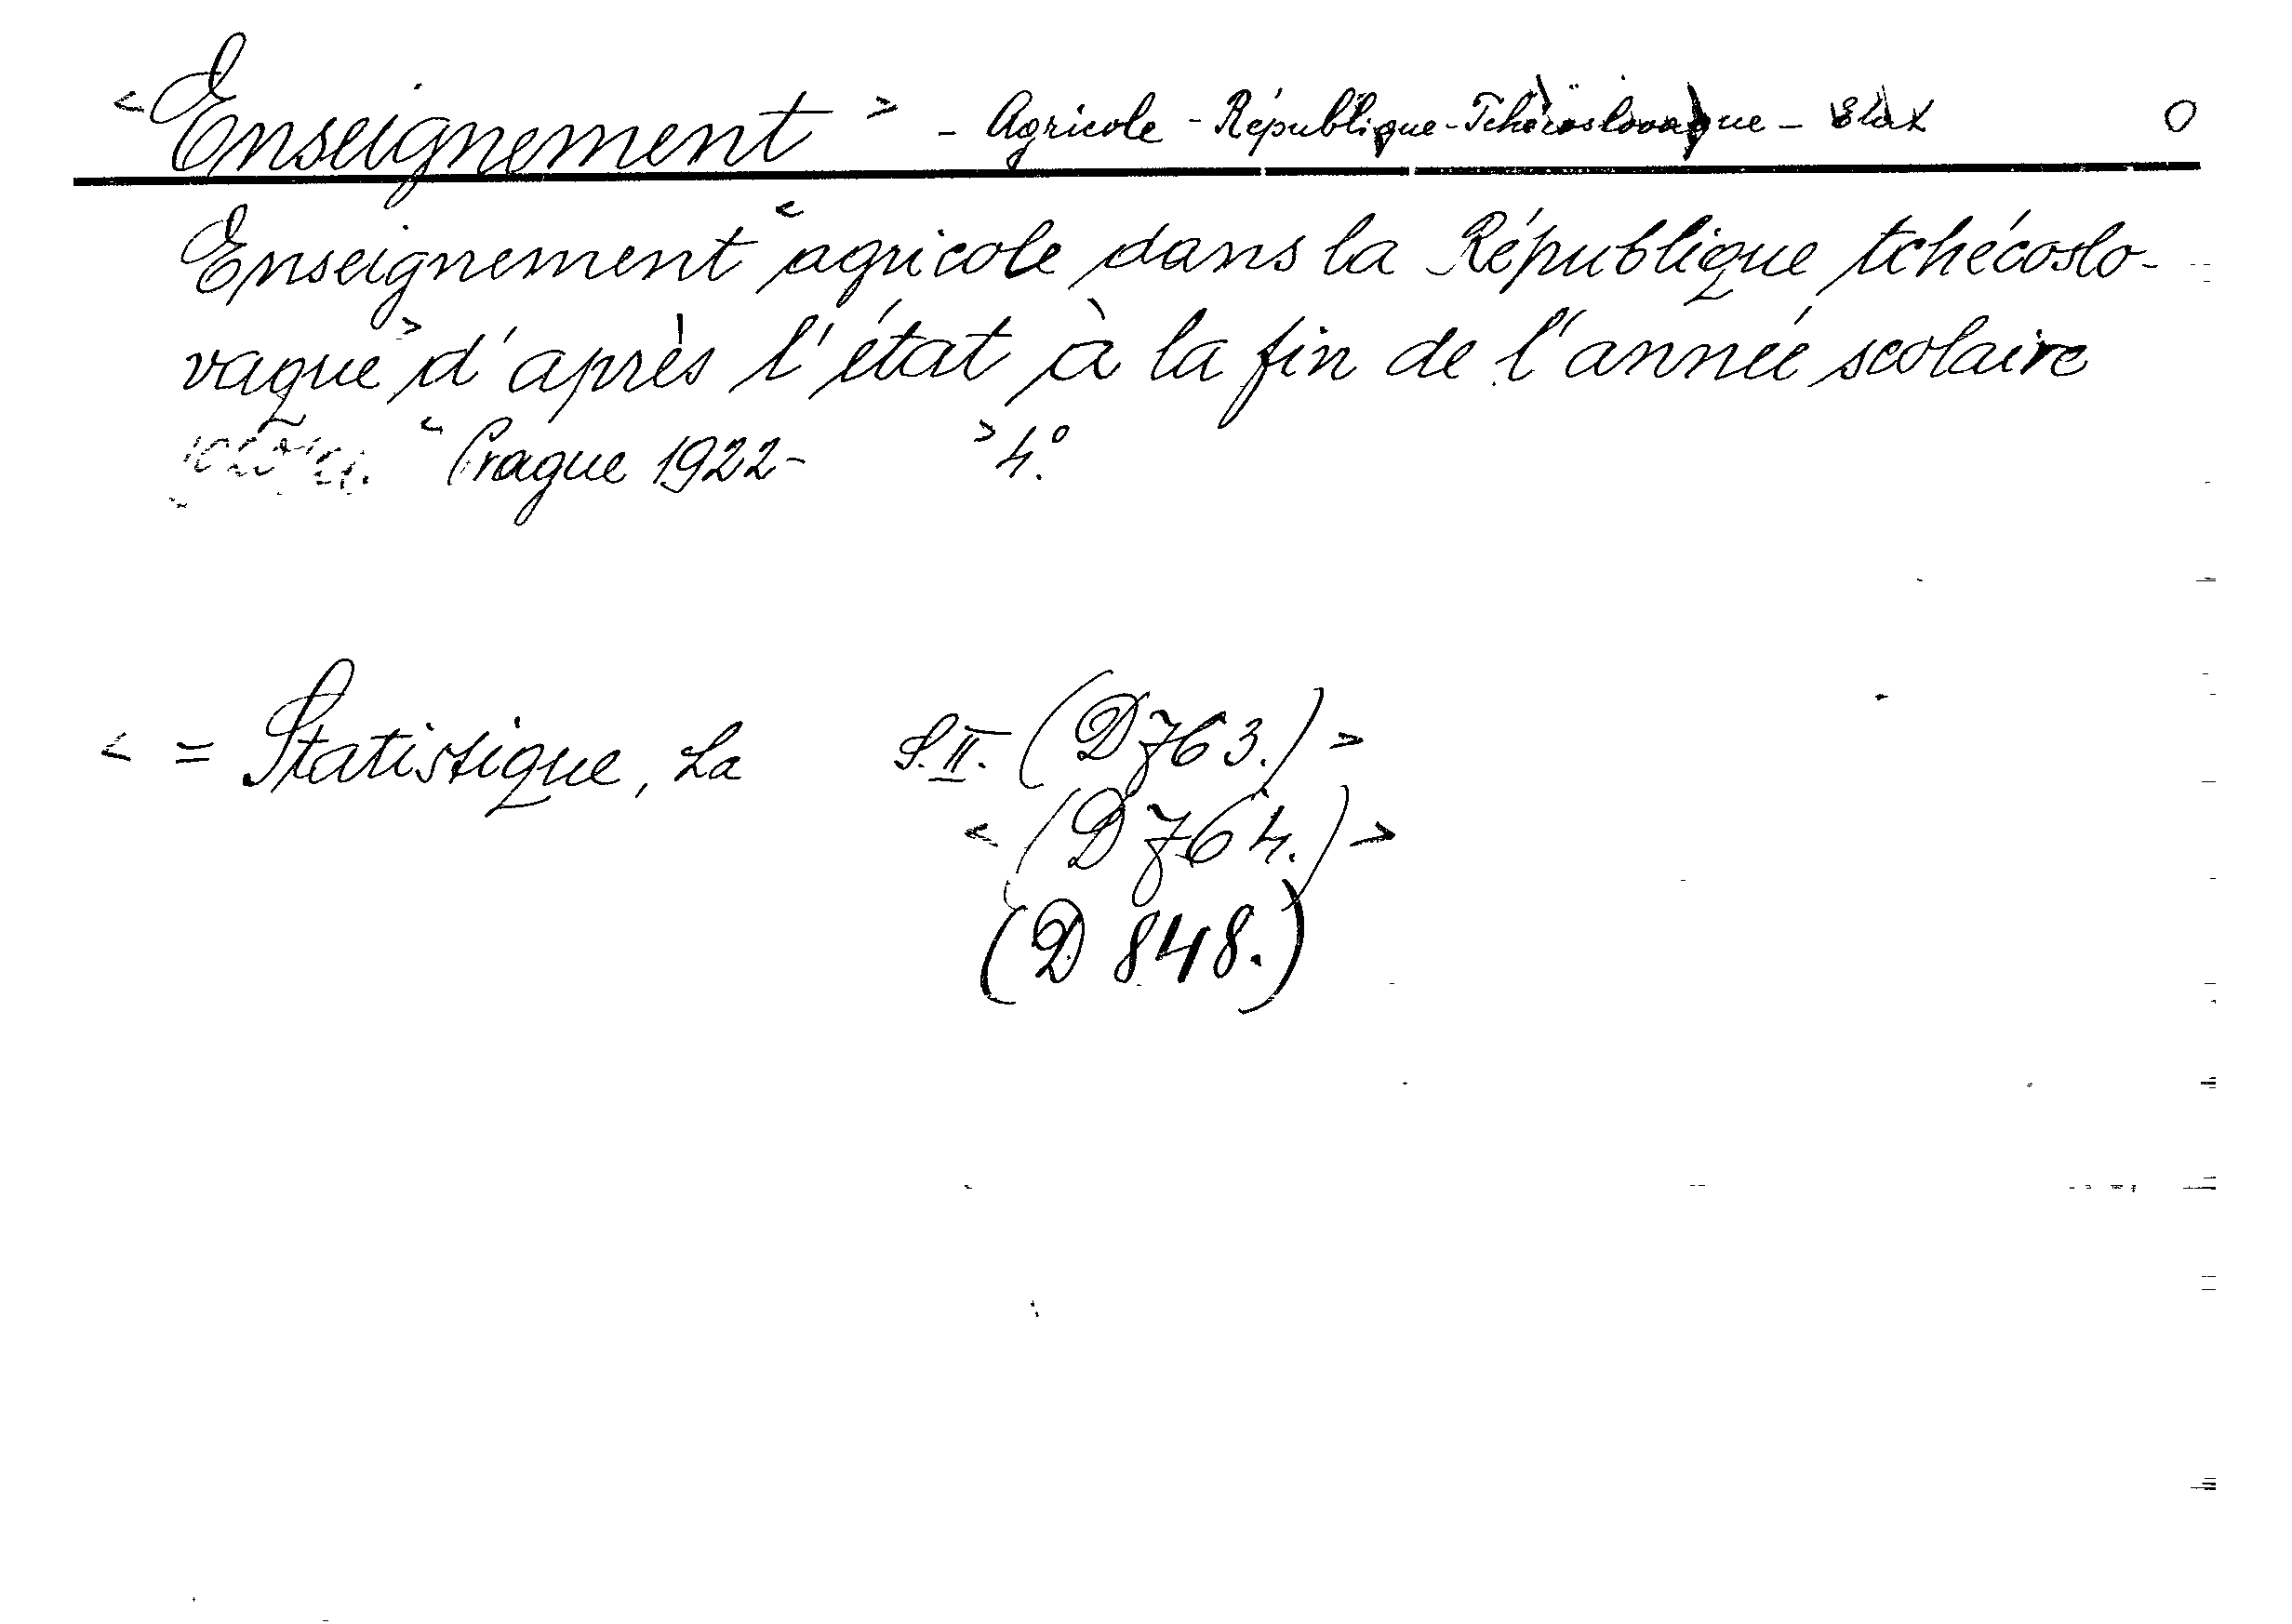 <Enseignement> - Agricole - République - Tchécoslovaque - État O
Enseignement <agricole dans la République tchécoslo-
vaque> d'après l'état à la fin de l'année scolaire
<Prague 1922- > 4.º
< = Statistique, La S.II. (D763.) >
< (D764.) >
(D 848.)